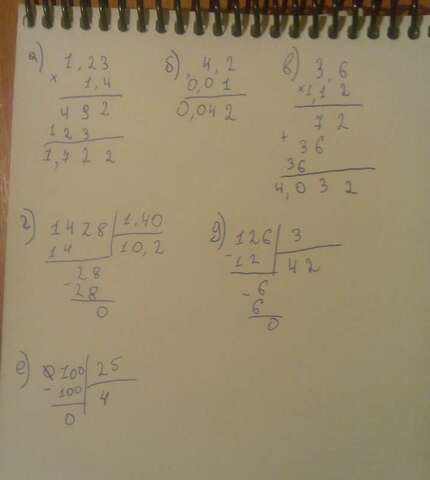 а) 1,23
× 1,4
4 9 2
1 2 3
1,7 2 2
б) 4,2
0,01
0,042
в) 3,6
× 1,1 2
7 2
+ 36
36
4,0 3 2
г) 1428 | 1,40
14 | 10,2
28
- 28
0
д) 126 | 3
- 12 | 42
- 6
6
0
е) 100 | 25
- 100 | 4
0